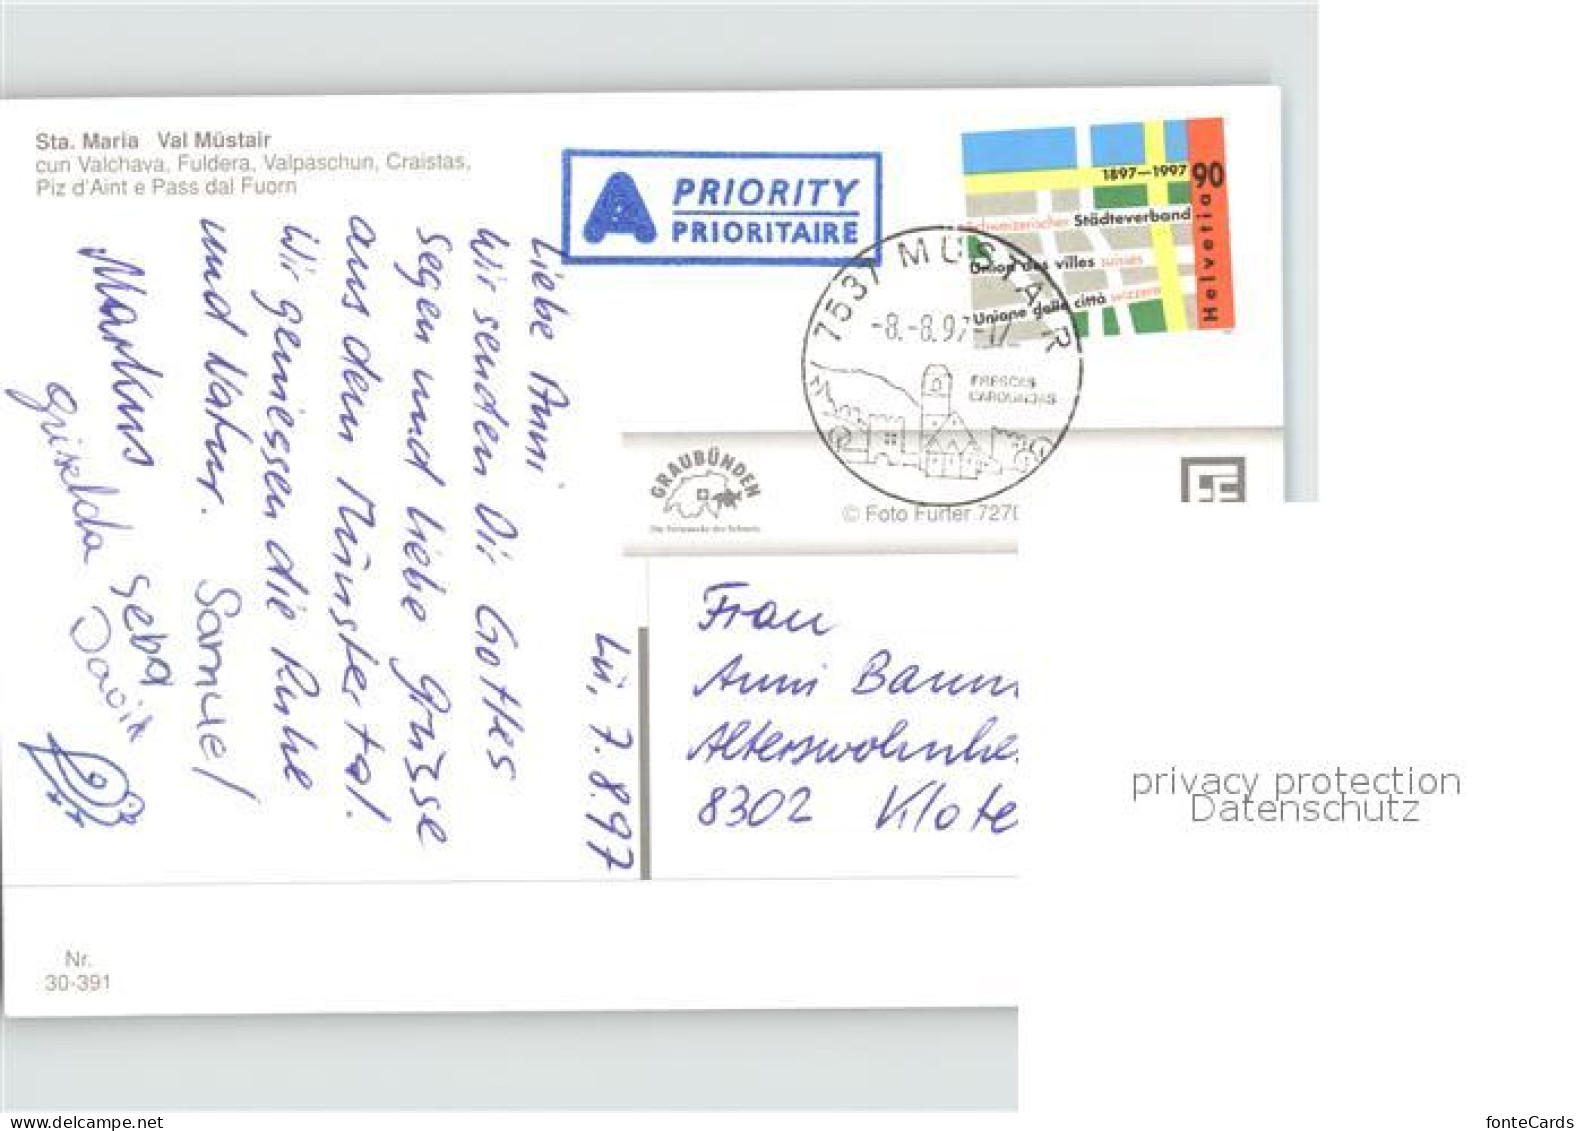 Sta. Maria Val Müstair
cun Valchava, Fuldera, Valpaschun, Craistas,
Piz d'Aint e Pass dal Fuorn
A PRIORITY
PRIORITAIRE
1897–1997 90
Schweizerischer Städteverband
Union des villes suisses
Unione delle città svizzere
Helvetia
7537 MÜSTAIR
-8.-8.97-17
FRESCAS
CAROLINGIAS
GRAUBÜNDEN
Die Ferienecke der Schweiz
© Foto Furter 7270
Lü, 7.8.97
Liebe Anni
Wir senden Dir Gottes
Segen und liebe Grüsse
aus dem Münstertal.
Wir geniessen die Ruhe
und Natur. Samuel
Markus Seba
Griselda David
Frau
Anni Baum
Alterswohnhe
8302 Klote
Nr.
30-391
privacy protection
Datenschutz
www.delcampe.net
fonteCards